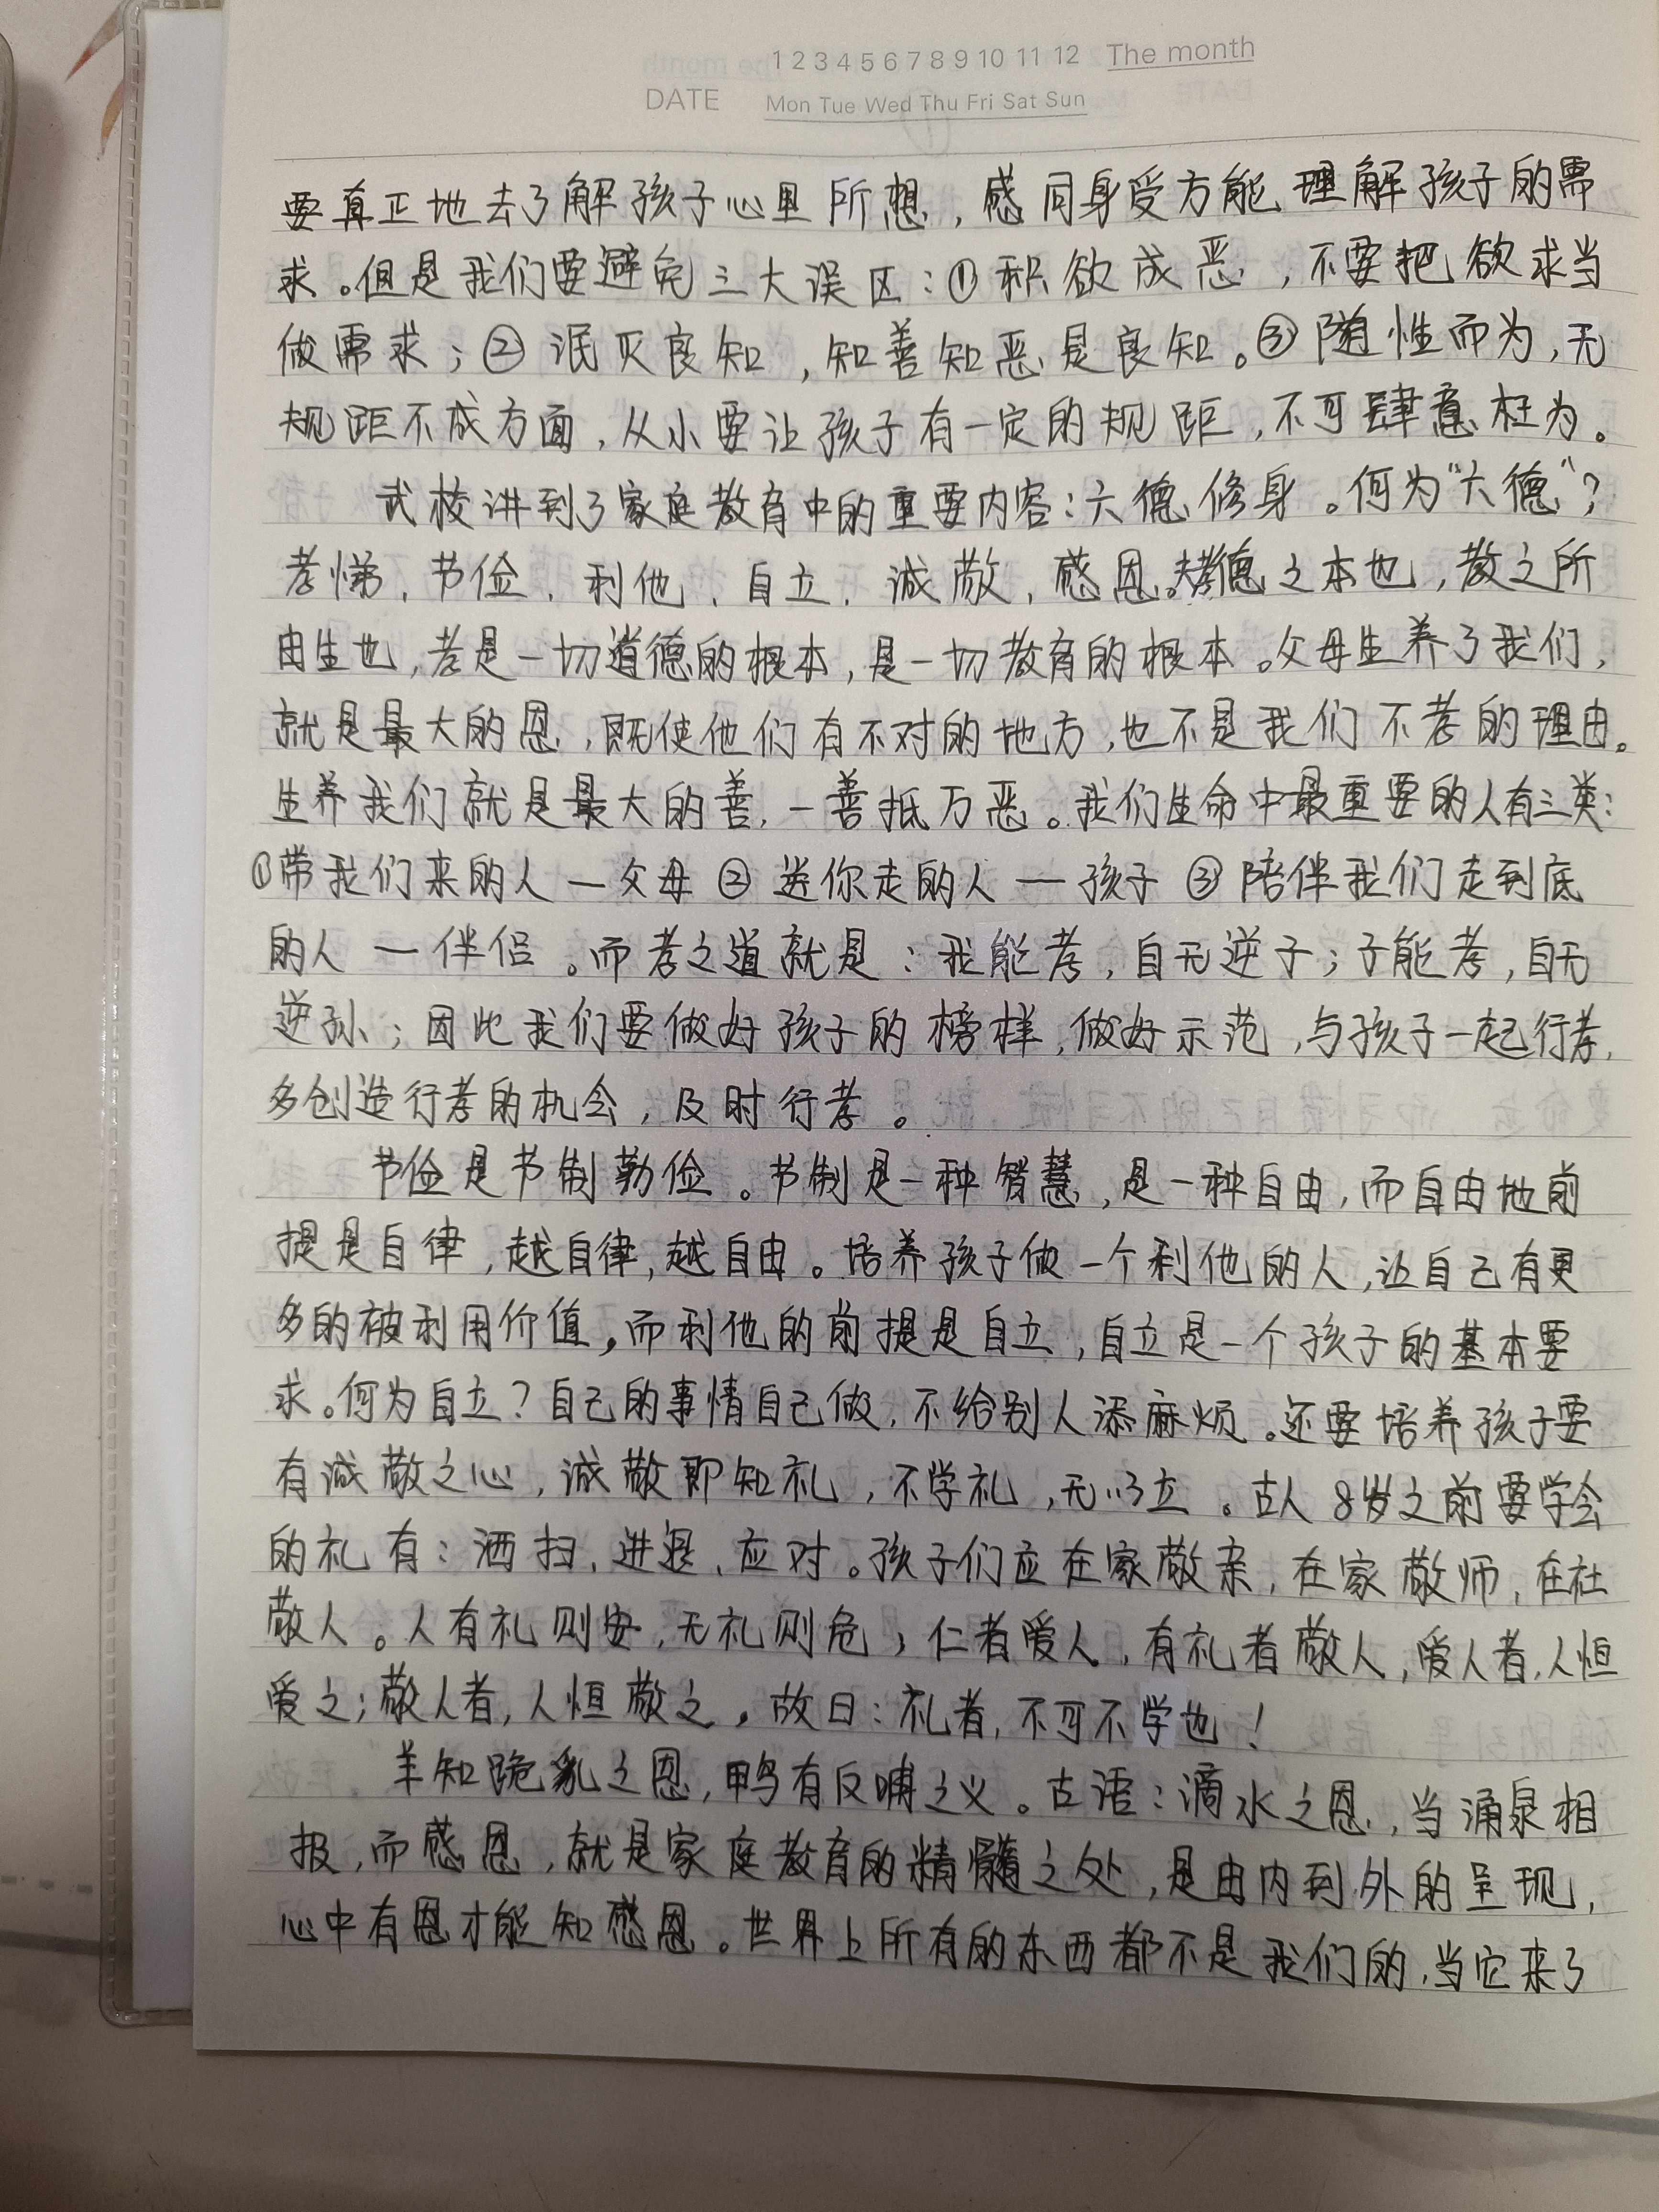 1 2 3 4 5 6 7 8 9 10 11 12 The month
DATE Mon Tue Wed Thu Fri Sat Sun
要真正地去了解孩子心里所想，感同身受方能理解孩子的需
求。但是我们要避免三大误区：①积欲成恶，不要把欲求当
做需求；②泯灭良知，知善知恶是良知。③随性而为，无
规距不成方面，从小要让孩子有一定的规距，不可肆意枉为。
武校讲到了家庭教育中的重要内容：六德修身。何为“六德”？
孝悌、节俭、利他、自立、诚敬，感恩。夫孝德之本也，教之所
由生也，孝是一切道德的根本，是一切教育的根本。父母生养了我们，
就是最大的恩，既使他们有不对的地方，也不是我们不孝的理由。
生养我们就是最大的善，一善抵万恶。我们生命中最重要的人有三类：
①带我们来的人—父母②送你走的人—孩子③陪伴我们走到底
的人—伴侣。而孝之道就是：我能孝，自无逆子；子能孝，自无
逆孙；因此我们要做好孩子的榜样，做好示范，与孩子一起行孝，
多创造行孝的机会，及时行孝。
节俭是节制勤俭。节制是一种智慧，是一种自由，而自由地前
提是自律，越自律，越自由。培养孩子做一个利他的人，让自己有更
多的被利用价值，而利他的前提是自立，自立是一个孩子的基本要
求。何为自立？自己的事情自己做，不给别人添麻烦。还要培养孩子要
有诚敬之心，诚敬即知礼，不学礼，无以立。古人8岁之前要学会
的礼有：洒扫，进退，应对。孩子们应在家敬亲，在家敬师，在社
敬人。人有礼则安，无礼则危，仁者爱人，有礼者敬人，爱人者，人恒
爱之；敬人者，人恒敬之，故曰：礼者，不可不学也！
羊知跪乳之恩，鸭有反哺之义。古语：滴水之恩，当涌泉相
报，而感恩，就是家庭教育的精髓之处，是由内到外的呈现，
心中有恩才能知感恩。世界上所有的东西都不是我们的，当它来了